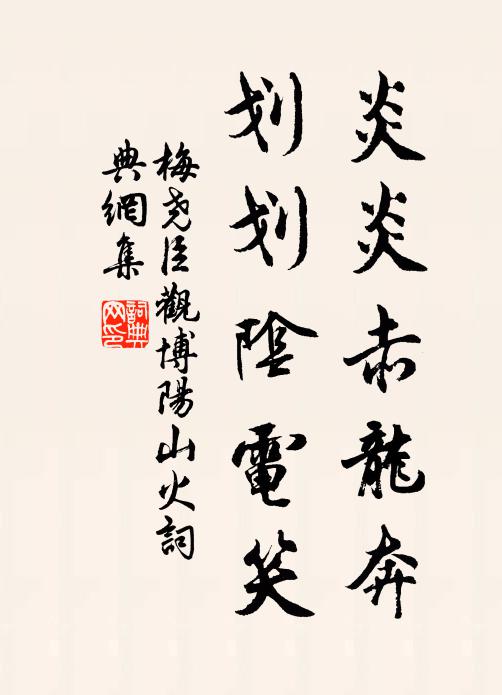 炎炎赤龍奔
划划陰電笑
梅尧臣觀博陽山火詞
典網集
詞典
网印